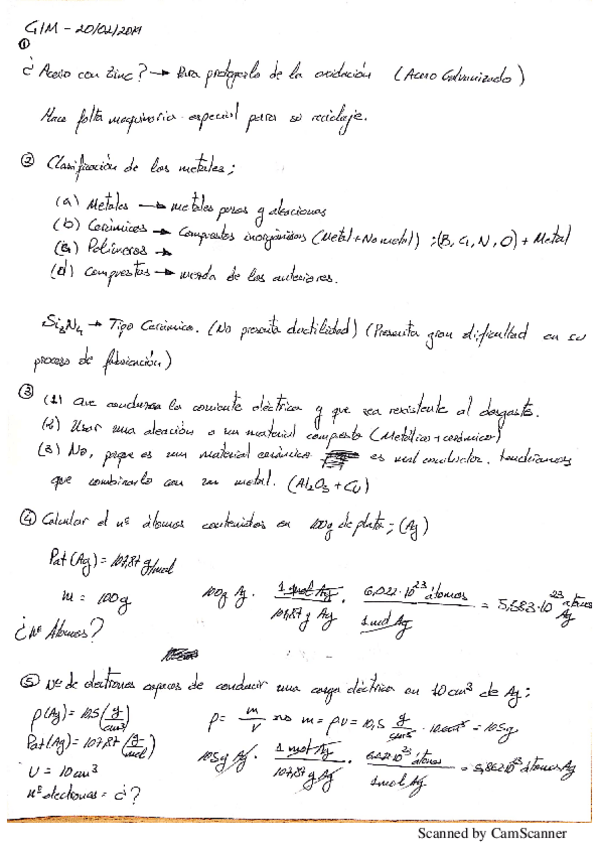 GIM - 20/02/2019
①
¿Acero con zinc? → Para protegerlo de la oxidación (Acero Galvanizado)
Hace falta maquinaria especial para su reciclaje.
② Clasificación de los metales;
(a) Metales → metales puros y aleaciones
(b) Cerámicos → Compuestos inorgánicos (Metal+No metal) ;(B, C, N, O) + Metal
(c) Polímeros →
(d) Compuestos → mezcla de los anteriores.
Si3N4 → Tipo Cerámico. (No presenta ductilidad) (Presenta gran dificultad en su
proceso de fabricación)
③ (1) Que conduzca la corriente eléctrica y que sea resistente al desgaste.
(2) Usar una aleación o un material compuesto (Metálico + cerámico)
(3) No, porque es un material cerámico es mal conductor. tendríamos
que combinarlo con un metal. (Al2O3 + Cu)
④ Calcular el nº átomos contenidos en 100g de plata; (Ag)
Pat(Ag) = 107,87 g/mol
m = 100g
100g Ag · 1 mol Ag / 107,87 g Ag · 6,022·10^23 átomos / 1 mol Ag = 5,583·10^23 átomos Ag
¿Nº Átomos?
⑤ Nº de electrones capaces de conducir una carga eléctrica en 10cm³ de Ag;
ρ(Ag) = 10,5 (g/cm³)
ρ = m/V → m = ρV = 10,5 g/cm³ · 10cm³ = 105g
Pat(Ag) = 107,87 (g/mol)
105g Ag · 1 mol Ag / 107,87 g Ag · 6,022·10^23 átomos / 1 mol Ag = 5,862·10^23 átomos Ag
V = 10cm³
nº electrones = ¿?
Scanned by CamScanner